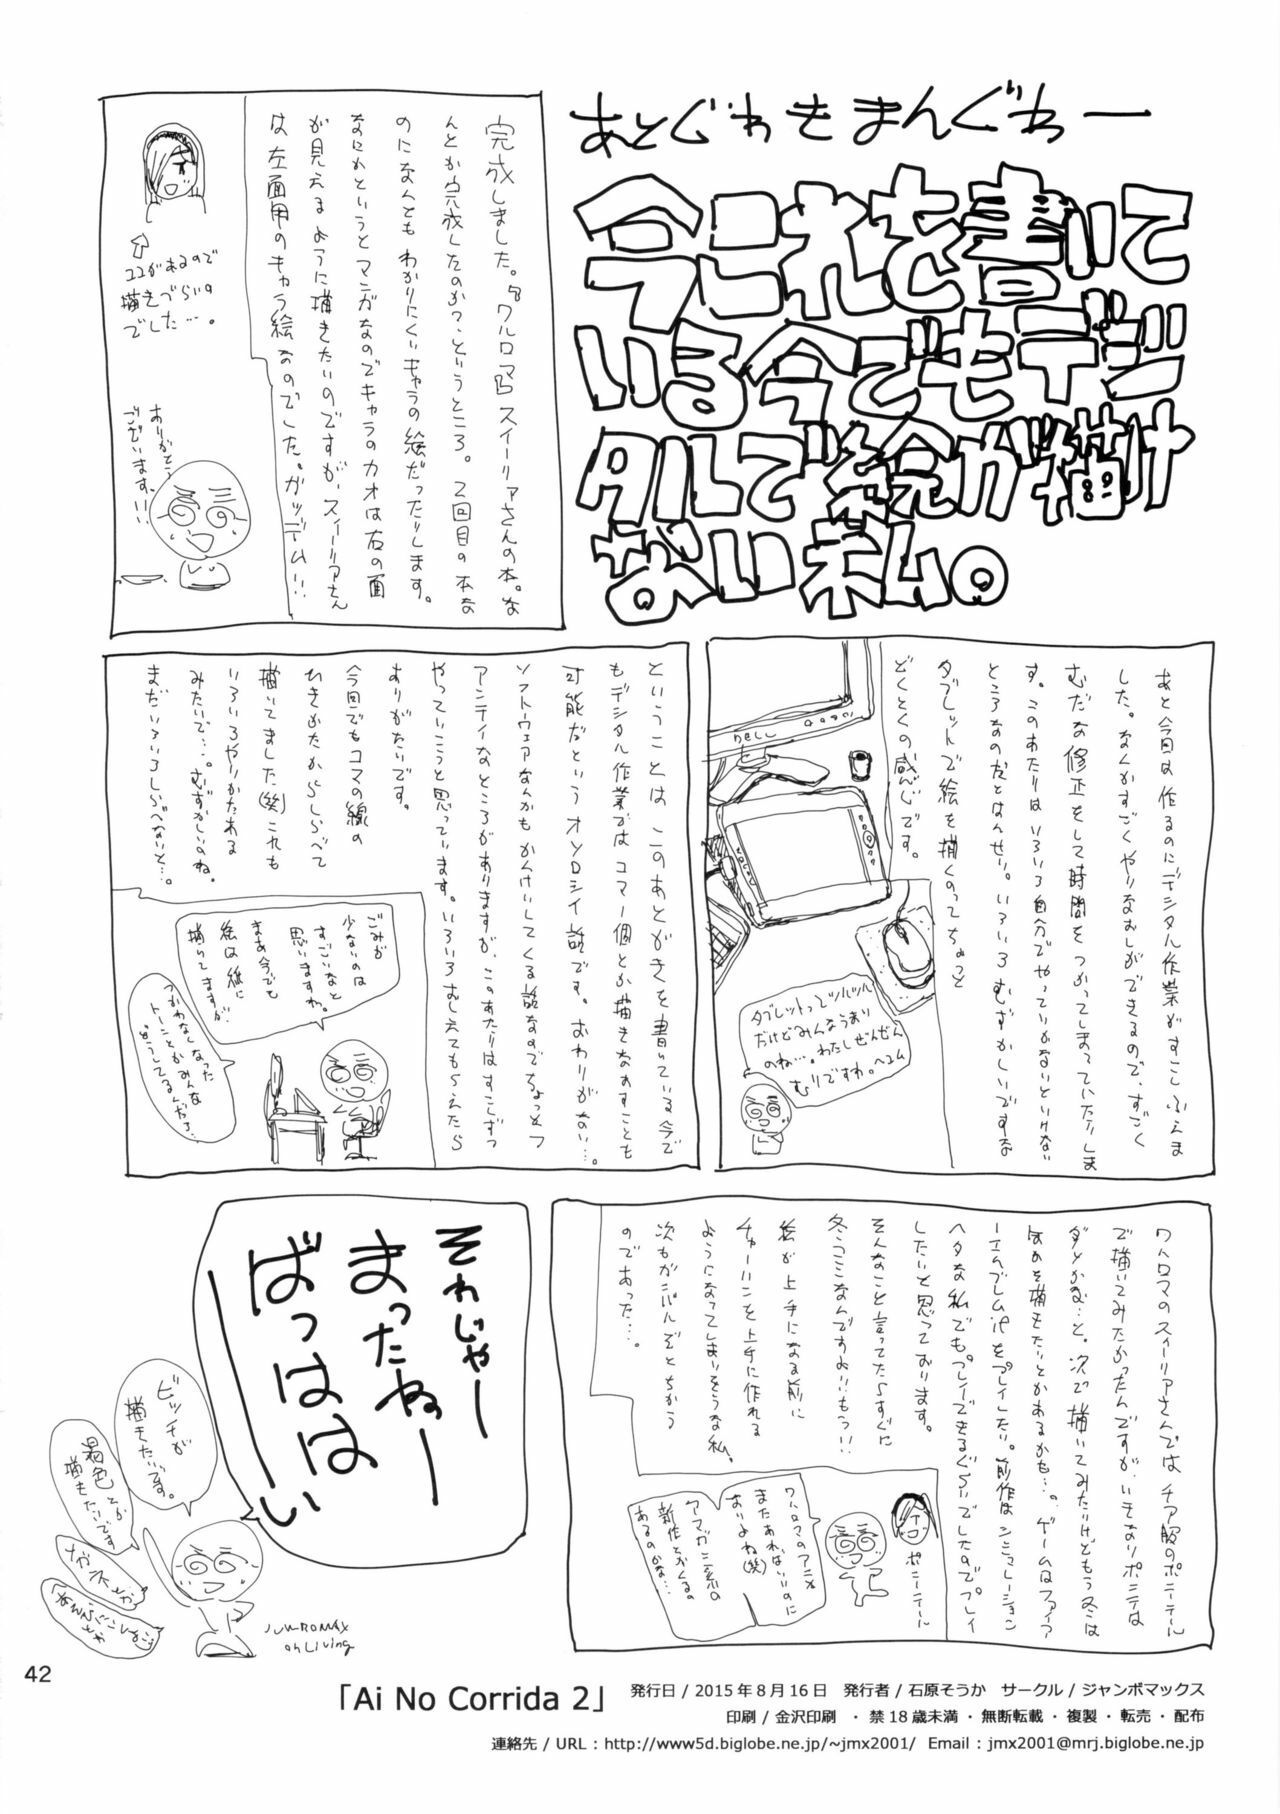 あとぐわもまんぐわー
今これを書いて
いる今でもデジ
タルで絵が描け
ない私。
完成しました。『ワルロマ』スイーリアさんの本。な
んとか完成したのかっ、というところ。2回目の本な
のになんともわかりにくいキャラの絵だったりします。
なにかというとマンガなのでキャラのカオは右の面
が見えるように描きたいのですが、スイーリアさん
は左面用のキャラ絵なのでした。ガッデーム!!
ココがあるので
描きづらいの
でした…。
ありがとう
ございます!!
あと今回は作るのにデジタル作業がすこしふえま
した。なんかすごくやりなおしができるので、すごく
むだな修正をして時間をつかってしまっていたりしま
す。このあたりはいろいろ自分でやっていかないといけない
ところなのだとはんせい。いろいろむずかしいですな
タブレットで絵を描くのってちょっと
どくとくの感じです。
DELL
タブレットってツルツル
だけどみんなうまい
のね…。わたしぜんぜん
むりですわ。ヘコム
ということはこのあとがきを書いている今で
もデジタル作業ではコマ一個とか描きなおすことも
可能だというオソロシイ話です。おわりがない…。
ソフトウェアなんかもかんけいしてくる話なのでちょっとフ
アンテイなところがありますが、このあたりはすこしずつ
やっていこうと思っています。いろいろおしえてもらえたら
ありがたいです。
今回でもコマの線の
ひきかたからしらべて
描いてました(笑)これも
いろいろやりかたある
みたいで…。むずかしいのね。
まだいろいろしらべないと…。
ごみが
少ないのは
すごいなと
思いますね。
まあ今でも
絵は紙に
描いてますが
つかわなくなった
トーンとかみんな
どうしてるんだろ…
ワルロマのスイーリアさんではチア服のポニーテール
で描いてみたかったんですが、いきなりポニテは
ダメかな…と。次で描いてみたいけどもう冬は
なかを描きたいとかあるかも…。ゲームはファイア
ーエムブレムifをプレイしたい。前作はシミュレーション
ヘタな私でもプレイできるぐらいでしたのでプレイ
したいと思っております。
そんなこと言ってたらすぐに
冬コミなんですよ!!もうっ!!
絵が上手になる前に
チャーハンを上手に作れる
ようになってしまいそうな私。
次もガンバルぞとちかう
のであった…。
ポニーテール
ワルロマのアニメ
またあればいいのに
おりよね(笑)
アマガミ系の
新作とかくるの
あるのかな…
それじゃー
まったねー
ばっははーい
ビッチが
描きたいです。
褐色とか
描きたいです
メガネとか
JUMBOMAX
on Living
42
「Ai No Corrida 2」 発行日 / 2015年8月16日　発行者 / 石原そうか　サークル / ジャンボマックス
印刷 / 金沢印刷　・禁18歳未満・無断転載・複製・転売・配布
連絡先 / URL : http://www5d.biglobe.ne.jp/~jmx2001/　Email : jmx2001@mrj.biglobe.ne.jp